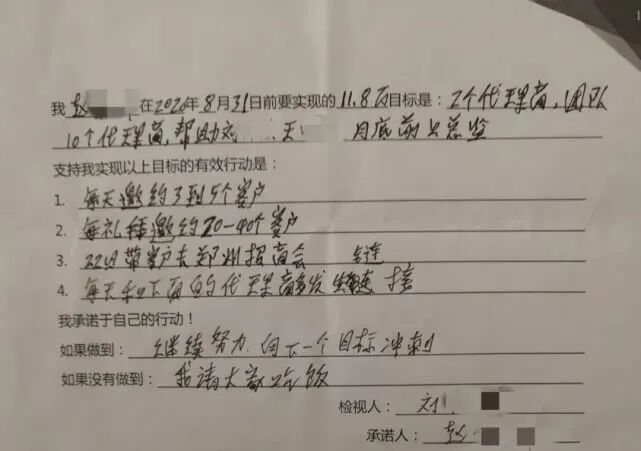 我 赵 在2020年8月31日前要实现的11.8万目标是：2个代理商，团队
10个代理商，帮助刘 天 月底前上总监
支持我实现以上目标的有效行动是：
1. 每天邀约3到5个客户
2. 每礼拜邀约20-40个客户
3. 22日带客户去郑州招商会
4. 每天和下面的代理商多发生链接
我承诺于自己的行动！
如果做到： 继续努力，向下一个目标冲刺
如果没有做到： 我请大家吃饭
检视人： 刘
承诺人： 赵